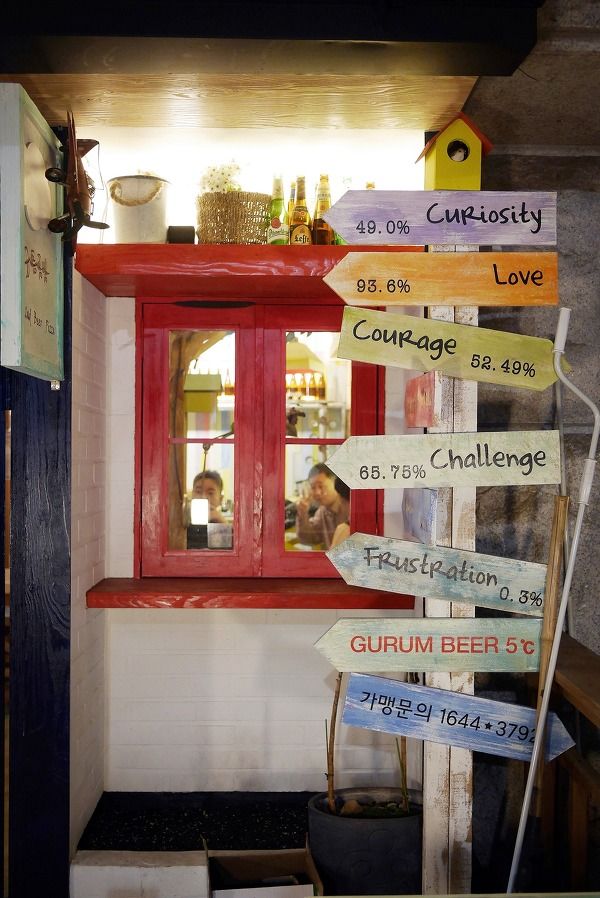 49.0% Curiosity
93.6% Love
Courage 52.49%
65.75% Challenge
Frustration 0.3%
GURUM BEER 5℃
가맹문의 1644★3792
Leffe